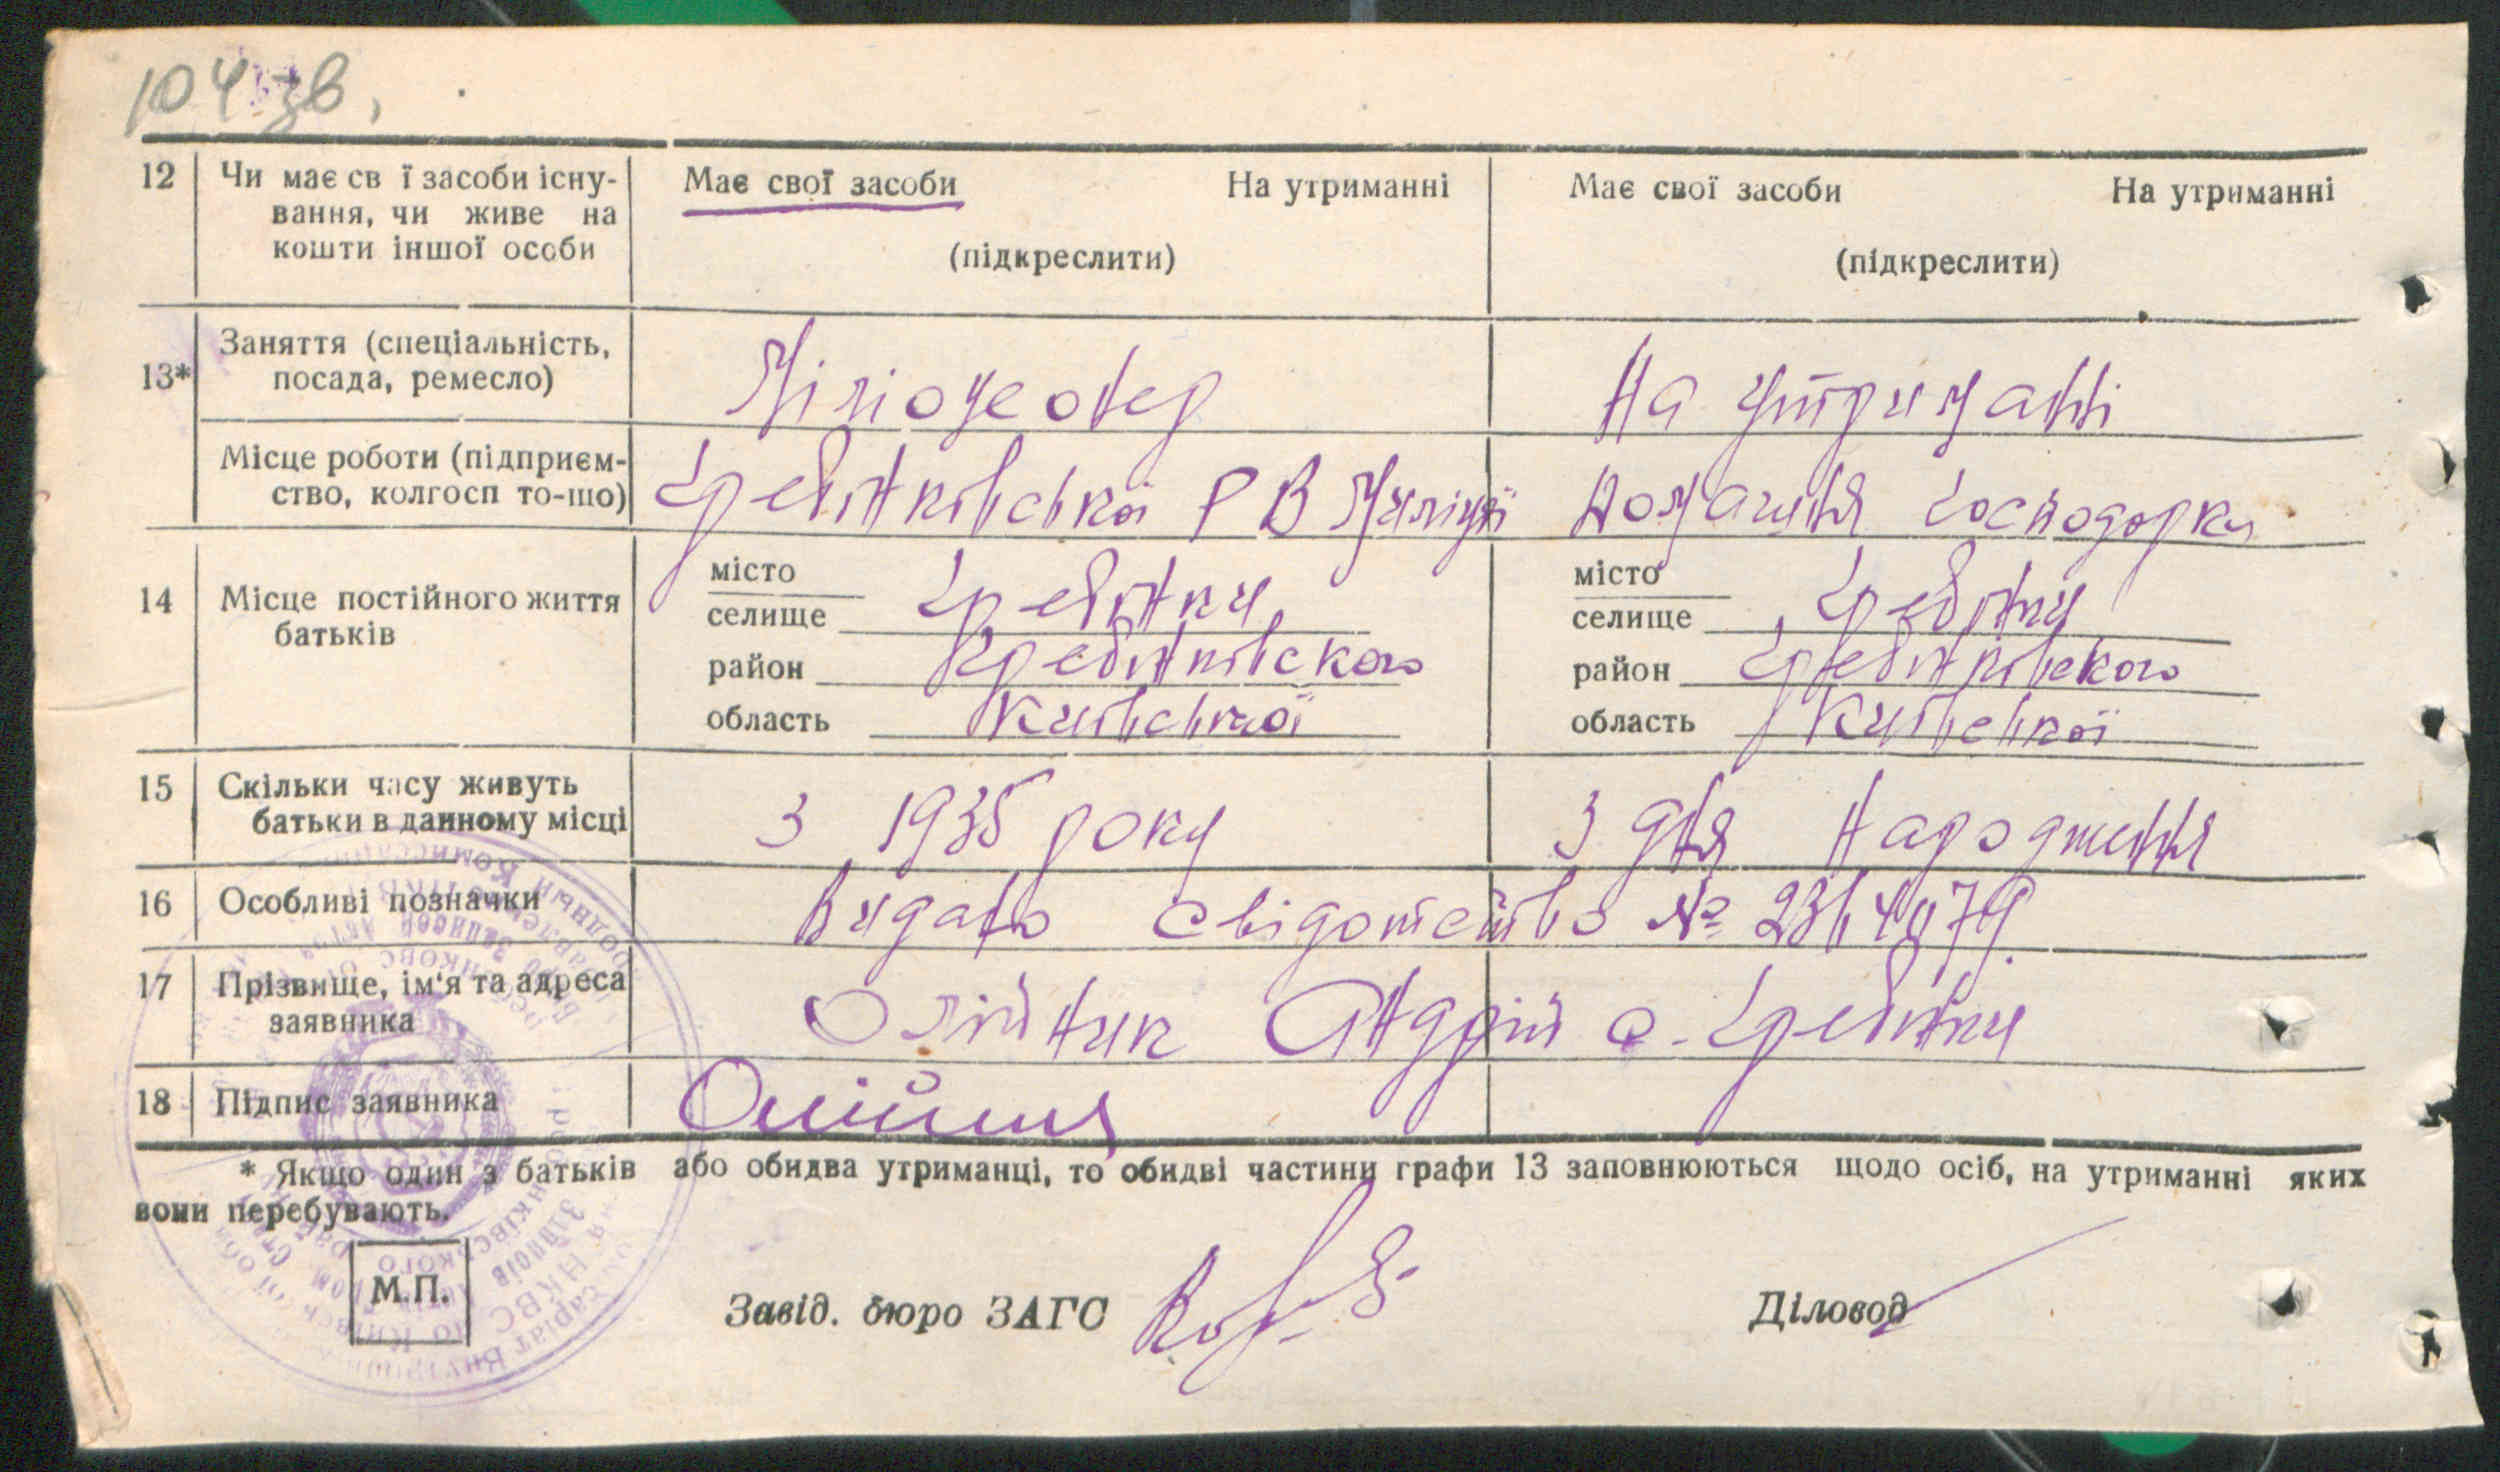 104 зв.
12 Чи має св ї засоби існу- Має свої засоби На утриманні Має свої засоби На утриманні
вання, чи живе на
кошти іншої особи (підкреслити) (підкреслити)
13* Заняття (спеціальність, Міліоцеонер На утриманні
посада, ремесло)
Місце роботи (підприєм- Гребінківської РВ Міліції Домашня господорка
ство, колгосп то-що)
14 Місце постійного життя місто місто
батьків селище Гребінки селище Гребінки
район Гребінківского район Гребінківского
область Київської область Київської
15 Скільки часу живуть З 1935 року З дня народження
батьки в данному місці
16 Особливі позначки Видано свідотство №
17 Прізвище, ім'я та адреса Олійник Андрій с. Гребінки
заявника
18 Підпис заявника Олійник
* Якщо один з батьків або обидва утриманці, то обидві частини графи 13 заповнюються щодо осіб, на утриманні яких
вони перебувають.
М.П. Завід. бюро ЗАГС Діловод